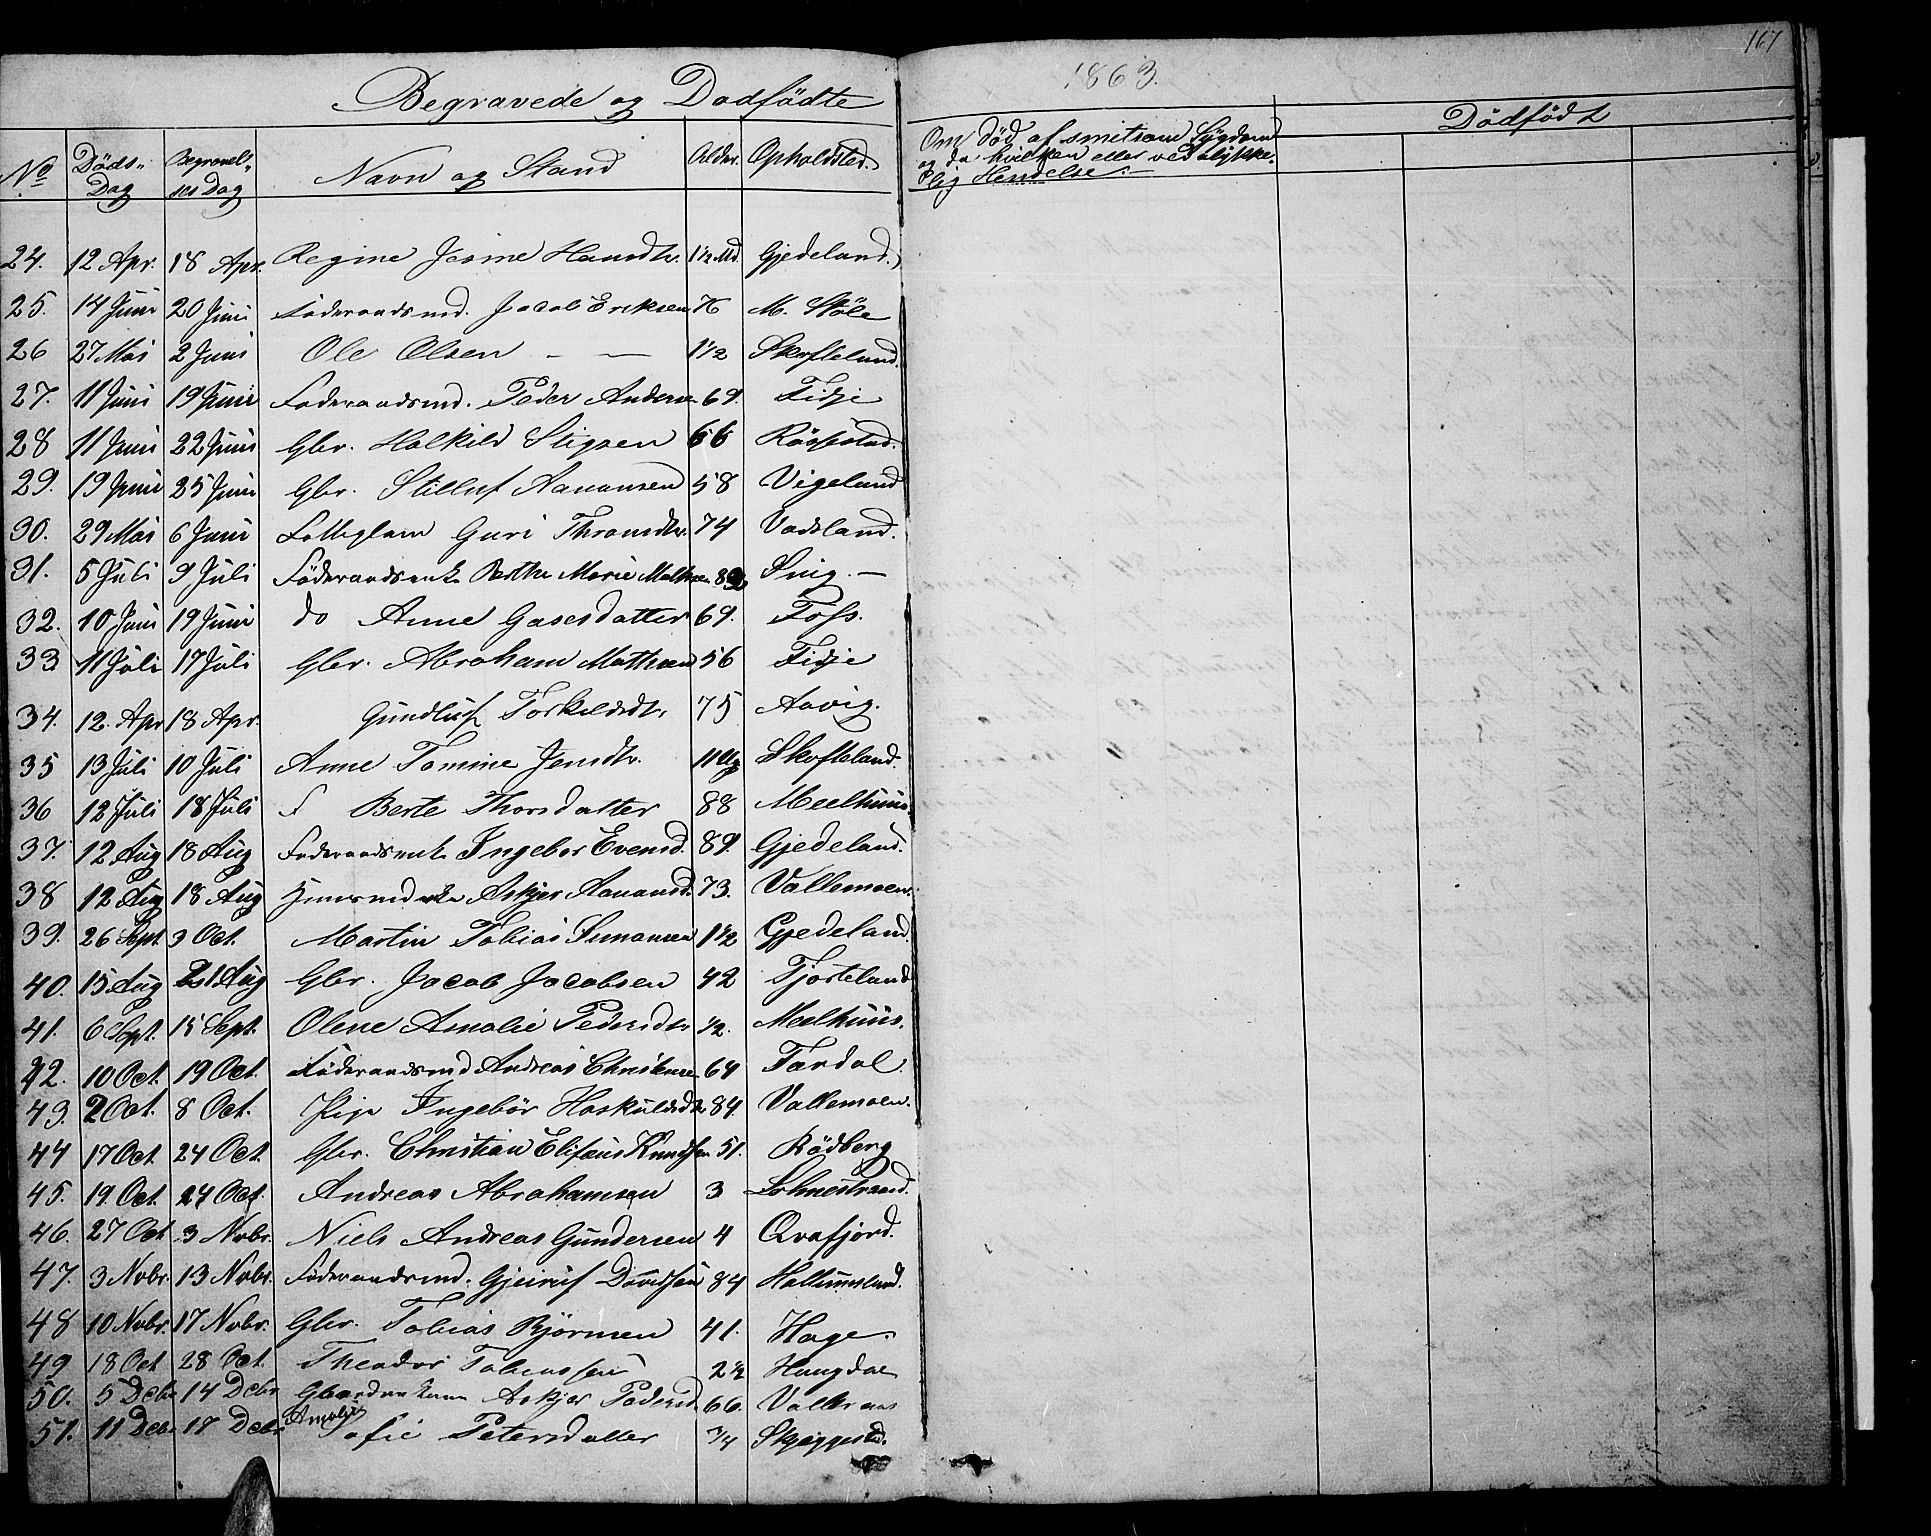 167
Begravede og Dødfødte
1863.
No Døds-Dag Begravelsses Dag Navn og Stand Alder Opholdsted.
Om død af smitsom Sygdom og da hvilken eller ved ulykkelig Hendelse.
Dødfødt
24. 12 Apr. 18 Apr. Regine Jesine Hansdtr. 1½ Md. Gjedeland.
25. 14 Juni 20 Juni Føderaadsmd. Jacob Eriksen 76 M. Støle
26 27 Mai 2 Juni Ole Olsen — — 1½ Skofteland.
27. 11 Juni 19 Juni Føderaadsmd. Peder Andersen 69. Fidje
28 11 Juni 22 Juni Gbr. Halkild Stigsen 66 Røssestad.
29. 19 Juni 25 Juni Gbr. Stilluf Aanansen 58 Vigeland
30. 29 Mai 6 Juni Guri Thromdtr. 74 Vadsland.
31. 5 Juli 9 Juli Føderaadsenke Berthe Marie 
32. 10 Juni 19 Juni do Anne Gasesdatter 69. Foss.
33 11 Juli 17 Juli Gbr. Abraham Mathsen 56 Fidje
34. 12. Apr 18 Apr. Gundluf Torkildsdtr. 75 Aavig.
35 13 Juli 10 Juli Anne Tomine Jensdtr. Skofteland.
36 12 Juli 18 Juli Berte Thorsdatter 88 Meelhuus.
37. 12 Aug 18 Aug Føderaadsenke Ingebor Evensd. 89. Gjedeland.
38 12 Aug 18 Aug Askjer Aanansd. 73. Vallemoen.
39. 26 Sept. 3 Oct. Martin Tobias Simonsen 1½ Gjedeland.
40. 15 Aug 21 Aug Gbr. Jacob Jacobsen 42 Tjorteland
41. 6 Sept. 15 Sept. Olene Amalie Pedersdtr ½. Meelhuus.
42. 10 Oct. 19 Oct. Føderaadsmd Andreas Christensen 64 Fardal.
43. 2 Oct. 8 Oct. Pige Ingebør Haskuldsdtr 84. Vallemoen.
44 17 Oct. 24 Oct. Gbr. Christian Elifæus Knudsen 51. Rødberg
45. 19 Oct. 24 Oct. Andreas Abrahamsen 3 Lohnestrand.
46. 27 Oct 3 Novbr. Niels Andreas Gundersen 4 Qvafjord.
47. 3 Novbr. 13 Novbr. Føderaadsmd. Gjeiruf Davidsen 84 Hallandsland.
48 10 Novbr. 17 Novbr. Gbr. Tobias Bjørnsen 41. Hage.
49 18 Oct 28 Oct. Theodor Tobiassen 2½ Haugdal
50. 5 Decbr 14 Decbr Askjer Pedersd. 66.
51. 11 Decbr 18 Decbr Amalie Sofie Petersdatter ¾ Skjeggestad.